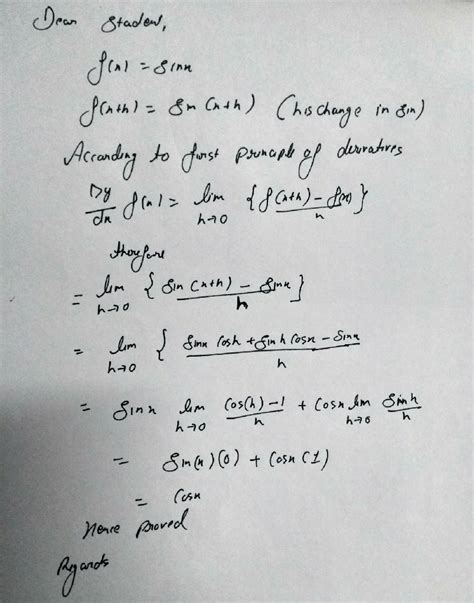 Dear Student,
f(x) = sinx
f(x+h) = sin (x+h) (h is change in sin)
According to first principle of derivatives
Dy/dx f(x) = lim h→0 {f(x+h) - f(x)/h}
therefore
= lim h→0 { sin (x+h) - sinx/h }
= lim h→0 { sinx cosh + sinh cosx - sinx/h
= sinx lim h→0 cos(h)-1/h + cosx lim h→0 sinh/h
= sin(x)(0) + cosx (1)
= cosx
Hence proved
Regards